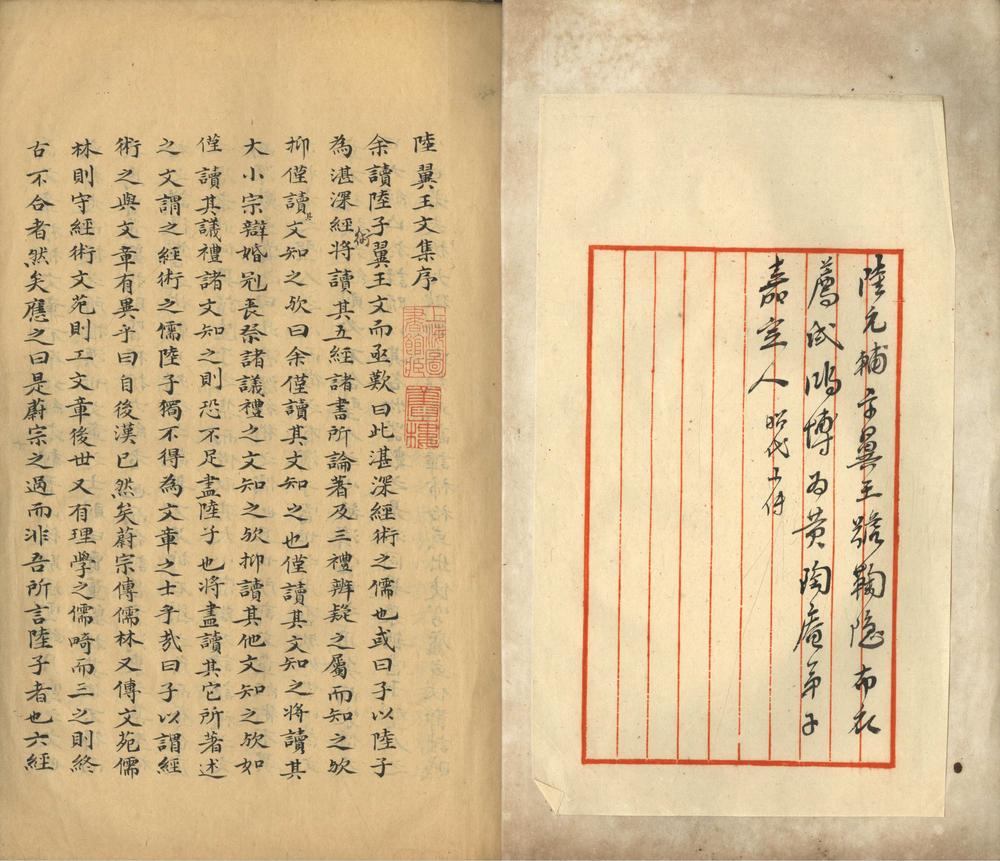 陸元輔字翼王號鞠隱布衣
薦試鴻博為黃陶庵弟子
嘉定人 昭代上件
陸翼王文集序
上海圖書館藏
書樓
余讀陸子翼王文而亟歎曰此湛深經術之儒也或曰子以陸子
為湛深經術將讀其五經諸書所論著及三禮辨疑之屬而知之欤
抑僅讀其文知之欤曰余僅讀其文知之也僅讀其文知之將讀其
大小宗辯婚冠長祭諸議禮之文知之欤抑讀其他文知之欤如
僅讀其議禮諸文知之則恐不足盡陸子也將盡讀其它所著述
之文謂之經術之儒陸子獨不得為文章之士乎哉曰子以謂經
術之與文章有異乎曰自後漢已然矣蔚宗傳儒林又傳文苑儒
林則守經術文苑則工文章後世又有理學之儒畸而三之則終
古不合者然矣應之曰是蔚宗之過而非吾所言陸子者也六經